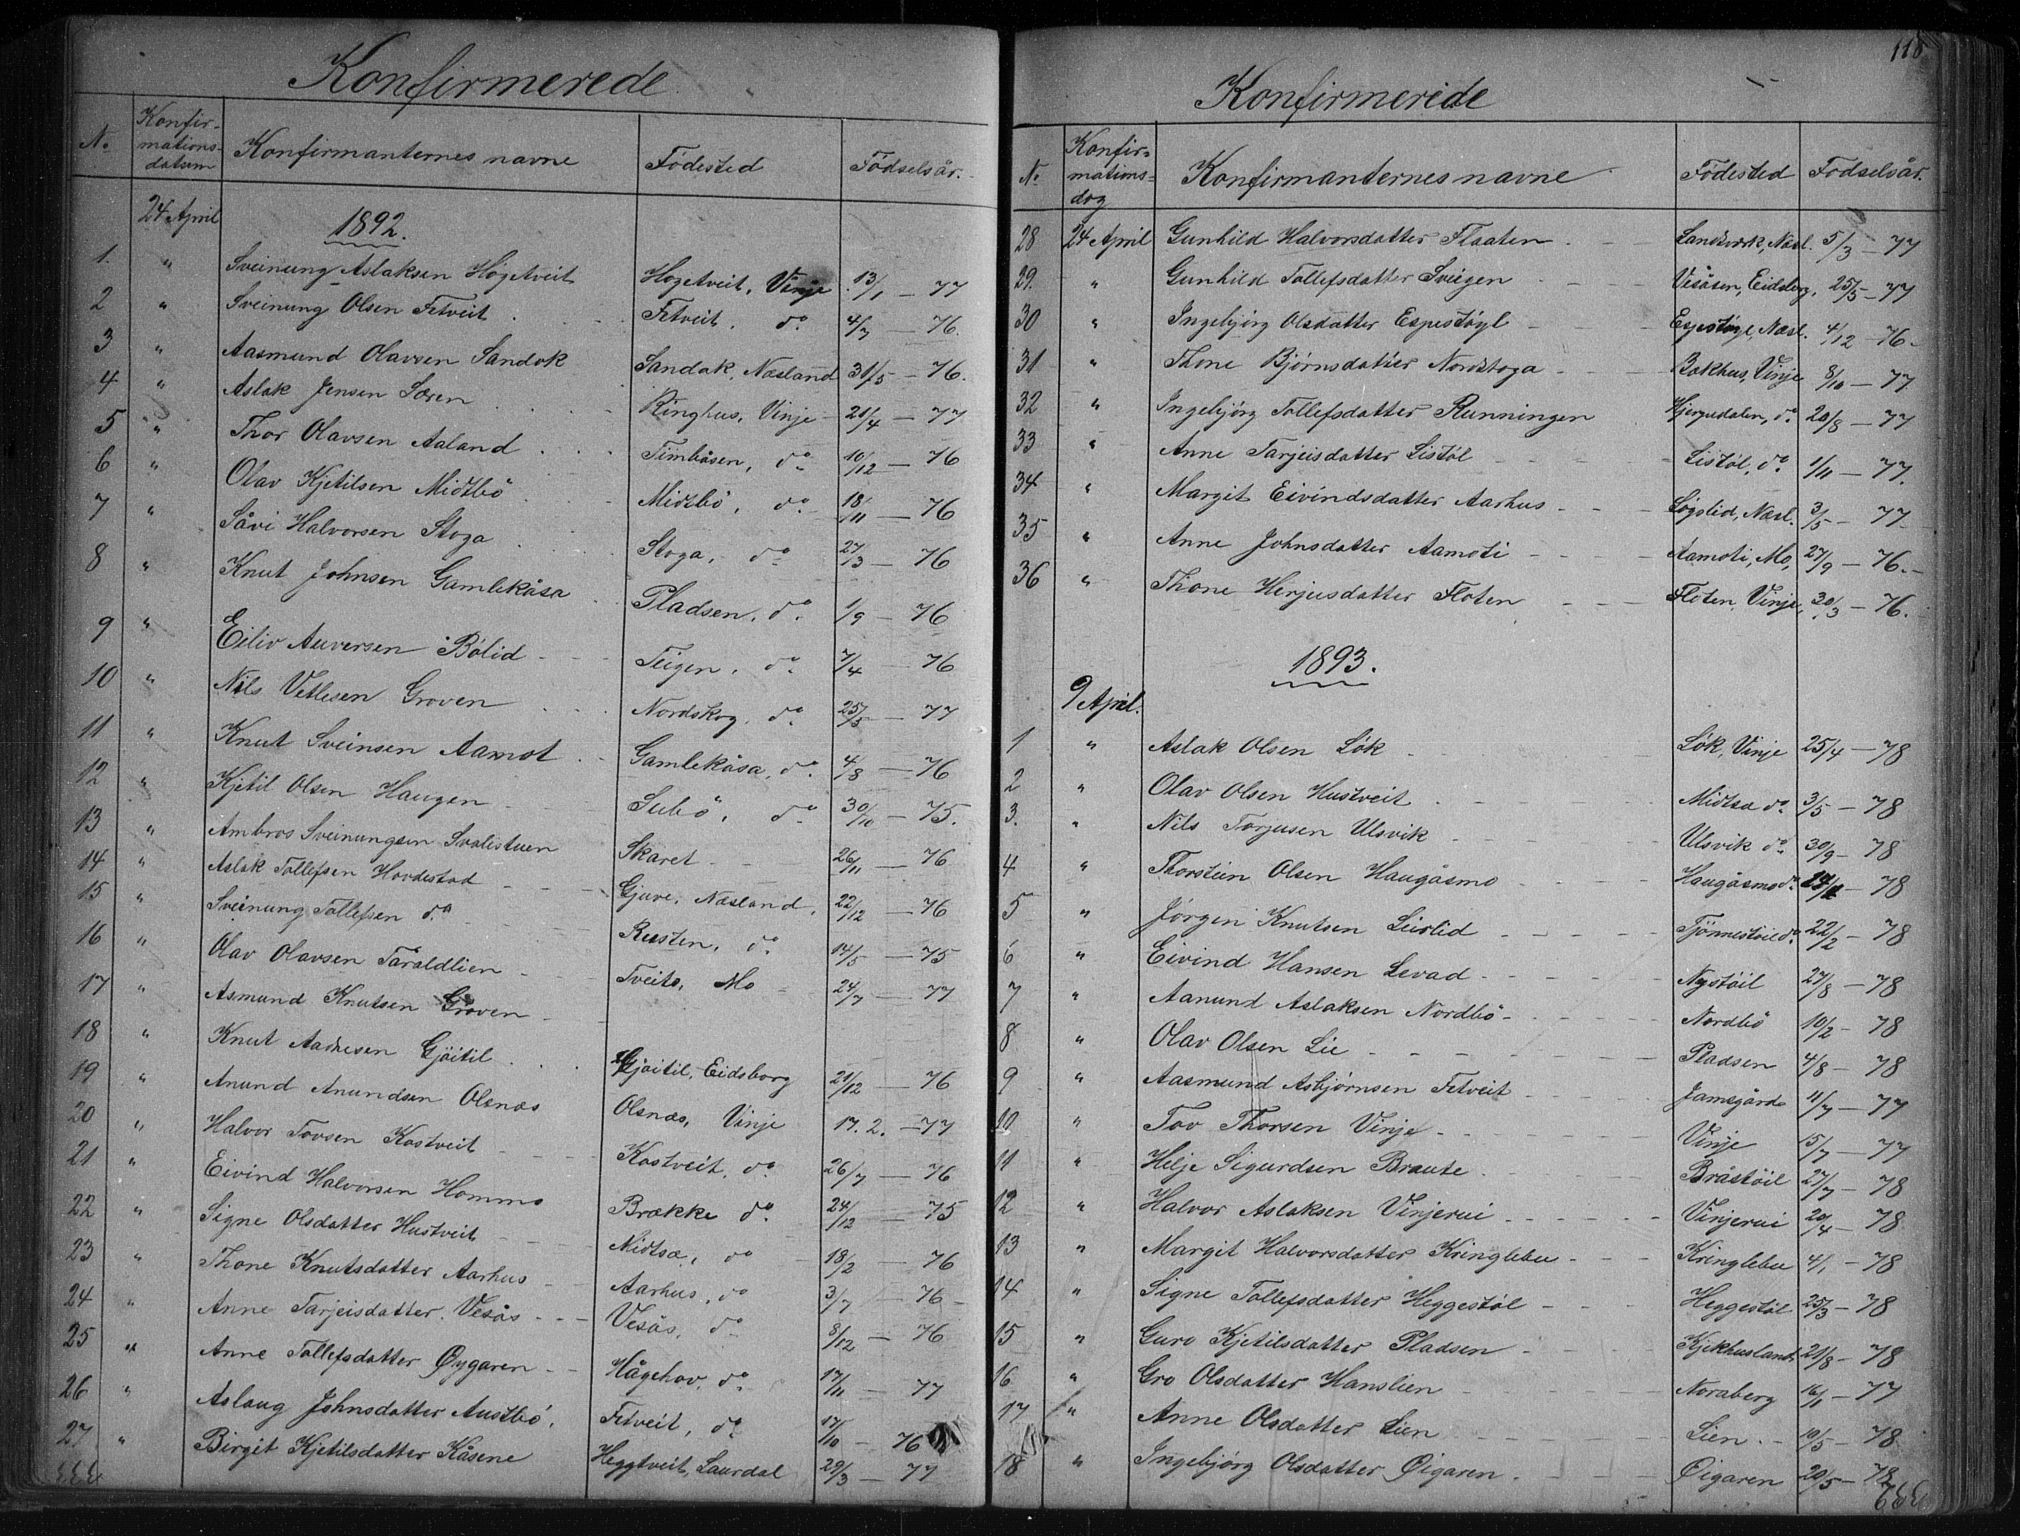 Konfirmerede
N. Konfirmationsdatum Konfirmanternes navne Födested Födselsår.
24 April 1892.
1. " Sveinung Aslaksen Högetveit Högetveit, Vinje 13/1 — 77
2 " Sveinung Olsen Fetveit Fetveit, do 4/7 — 76.
3 " Aasmund Olavsen Sandok Sandok, Næsland 31/5 — 76.
4 " Aslak Jensen Særen Kinghus, Vinje 21/4 — 77
5 " Thor Olavsen Aaland Timbåsen, do 10/12 — 76
6 " Olav Kjetilsen Midtbö Midtbö, do 18/11 — 76
7 " Såvi Halvorsen Stoga Stoga, do 27/3 — 76
8 " Knut Johnsen Gamlekåsa Pladsen, do 1/9 — 76
9 " Eiliv Auversen Bölid Teigen, do 7/4 — 76
10 " Nils Vetlesen Groven Nordskog, do 25/5 — 77
11 " Knut Sveinsen Aamot Gamlekåsa, do 4/8 — 76
12 " Kjetil Olsen Haugen Subö, do 30/10 — 75.
13 " Ambros Sveinungsen Svalestuen Skaret 26/11 — 76
14 " Aslak Tollefsen Hovdestad Gjuve, Næsland, 22/12 — 76
15 " Sveinung Tollefsen do Rusten, do 14/5 — 75
16 " Olav Olavsen Taraldlien Tveito, Mo 24/7 — 77
17 " Asmund Knutsen Groven
18 " Knut Aadnesen Gjöitil Gjöitil, Eidsborg 21/12 — 76
19 " Anund Anundsen Olsnæs Olsnæs, Vinje 17. 2. — 77
20 " Halvor Tovsen Kostveit Kostveit, do 26/7 — 76
21 " Eivind Halvorsen Hommo Brække do 24/12 — 75
22 " Signe Olsdatter Hustveit Midtsæ, do 18/2 — 76
23 " Thone Knutsdatter Aarhus Aarhus, do 3/7 — 76
24 " Anne Tarjeisdatter Vesås Vesås, do 8/12 — 76
25 " Anne Tollefsdatter Øygaren Hågehov, do 17/11 — 77
26 " Aslaug Johnsdatter Austbö. Fetveit, do 17/10 — 76
27 " Birgit Kjetilsdatter Kåsene Heggtveit, Laurdal 29/3 — 77
118
Konfirmerede
N. Konfirmationsdag Konfirmanternes navne Födested Födselsår.
28 24 April Gunhild Halvorsdatter Flaaten Landværk, Næsl. 5/3 — 77
29. " Gunhild Tollefsdatter Sveigen Vesåsen, Eidsborg, 25/5 — 77
30 " Ingebjørg Olsdatter Espestøyl Espestøyl, Næsl. 4/12 — 76.
31 " Thone Bjørnsdatter Nordstoga Bakhus, Vinje 8/10 — 77
32 " Ingebjörg Tollefsdatter Runningen Hjerpedalen, do 20/8 — 77
33 " Anne Tarjeisdatter Listöl Listöl, do 1/11 — 77.
34 " Margit Eivindsdatter Aarhus Løgslid, Næsl. 3/5 — 77
35 " Anne Johnsdatter Aamoti Aamoti, Mo, 27/9 — 76.
36 " Thone Herjusdatter Floten Floten, Vinje, 30/3 — 76.
1893.
9 April.
1 " Aslak Olsen Løk Løk, Vinje 25/4 — 78
2 " Olav Olsen Hustveit Midtsæ do 3/5 — 78
3. " Nils Torjusen Ulsvik Ulsvik do 30/9 — 78
4 " Thorstein Olsen Haugåsmo Haugåsmo do — 78
5 " Jörgen Knutsen Leirlid Tjönnestöil do 22/2 — 78
6 " Eivind Hansen Levad Nystöil 27/8 — 78
7 " Aanund Aslaksen Nordbö Nordbö 10/2 — 78
8 " Olav Olsen Lie Pladsen 4/8 — 78
9 " Aasmund Asbjørnsen Fetveit Jamsgård 11/7 — 77
10 " Tov Thorsen Vinje Vinje 15/7 — 77
11 " Helje Sigurdsen Braute Bråstöil 27/7 — 78
12 " Halvor Aslaksen Vinjerui Vinjerui 20/4 — 78
13 " Margit Halvorsdatter Kringlebu Kringlebu 4/1 — 78
14 " Signe Tollefsdatter Heggestöl Heggestöl 25/3 — 78
15 " Guro Kjetilsdatter Pladsen Kjekhusland, 21/8 — 78
16 " Gro Olsdatter Hanslien Noraberg 16/1 — 77
17 " Anne Olsdatter Lien Lien 10/5 — 78
18 " Ingebjørg Olsdatter Øigaren Øigaren 20/5 — 78